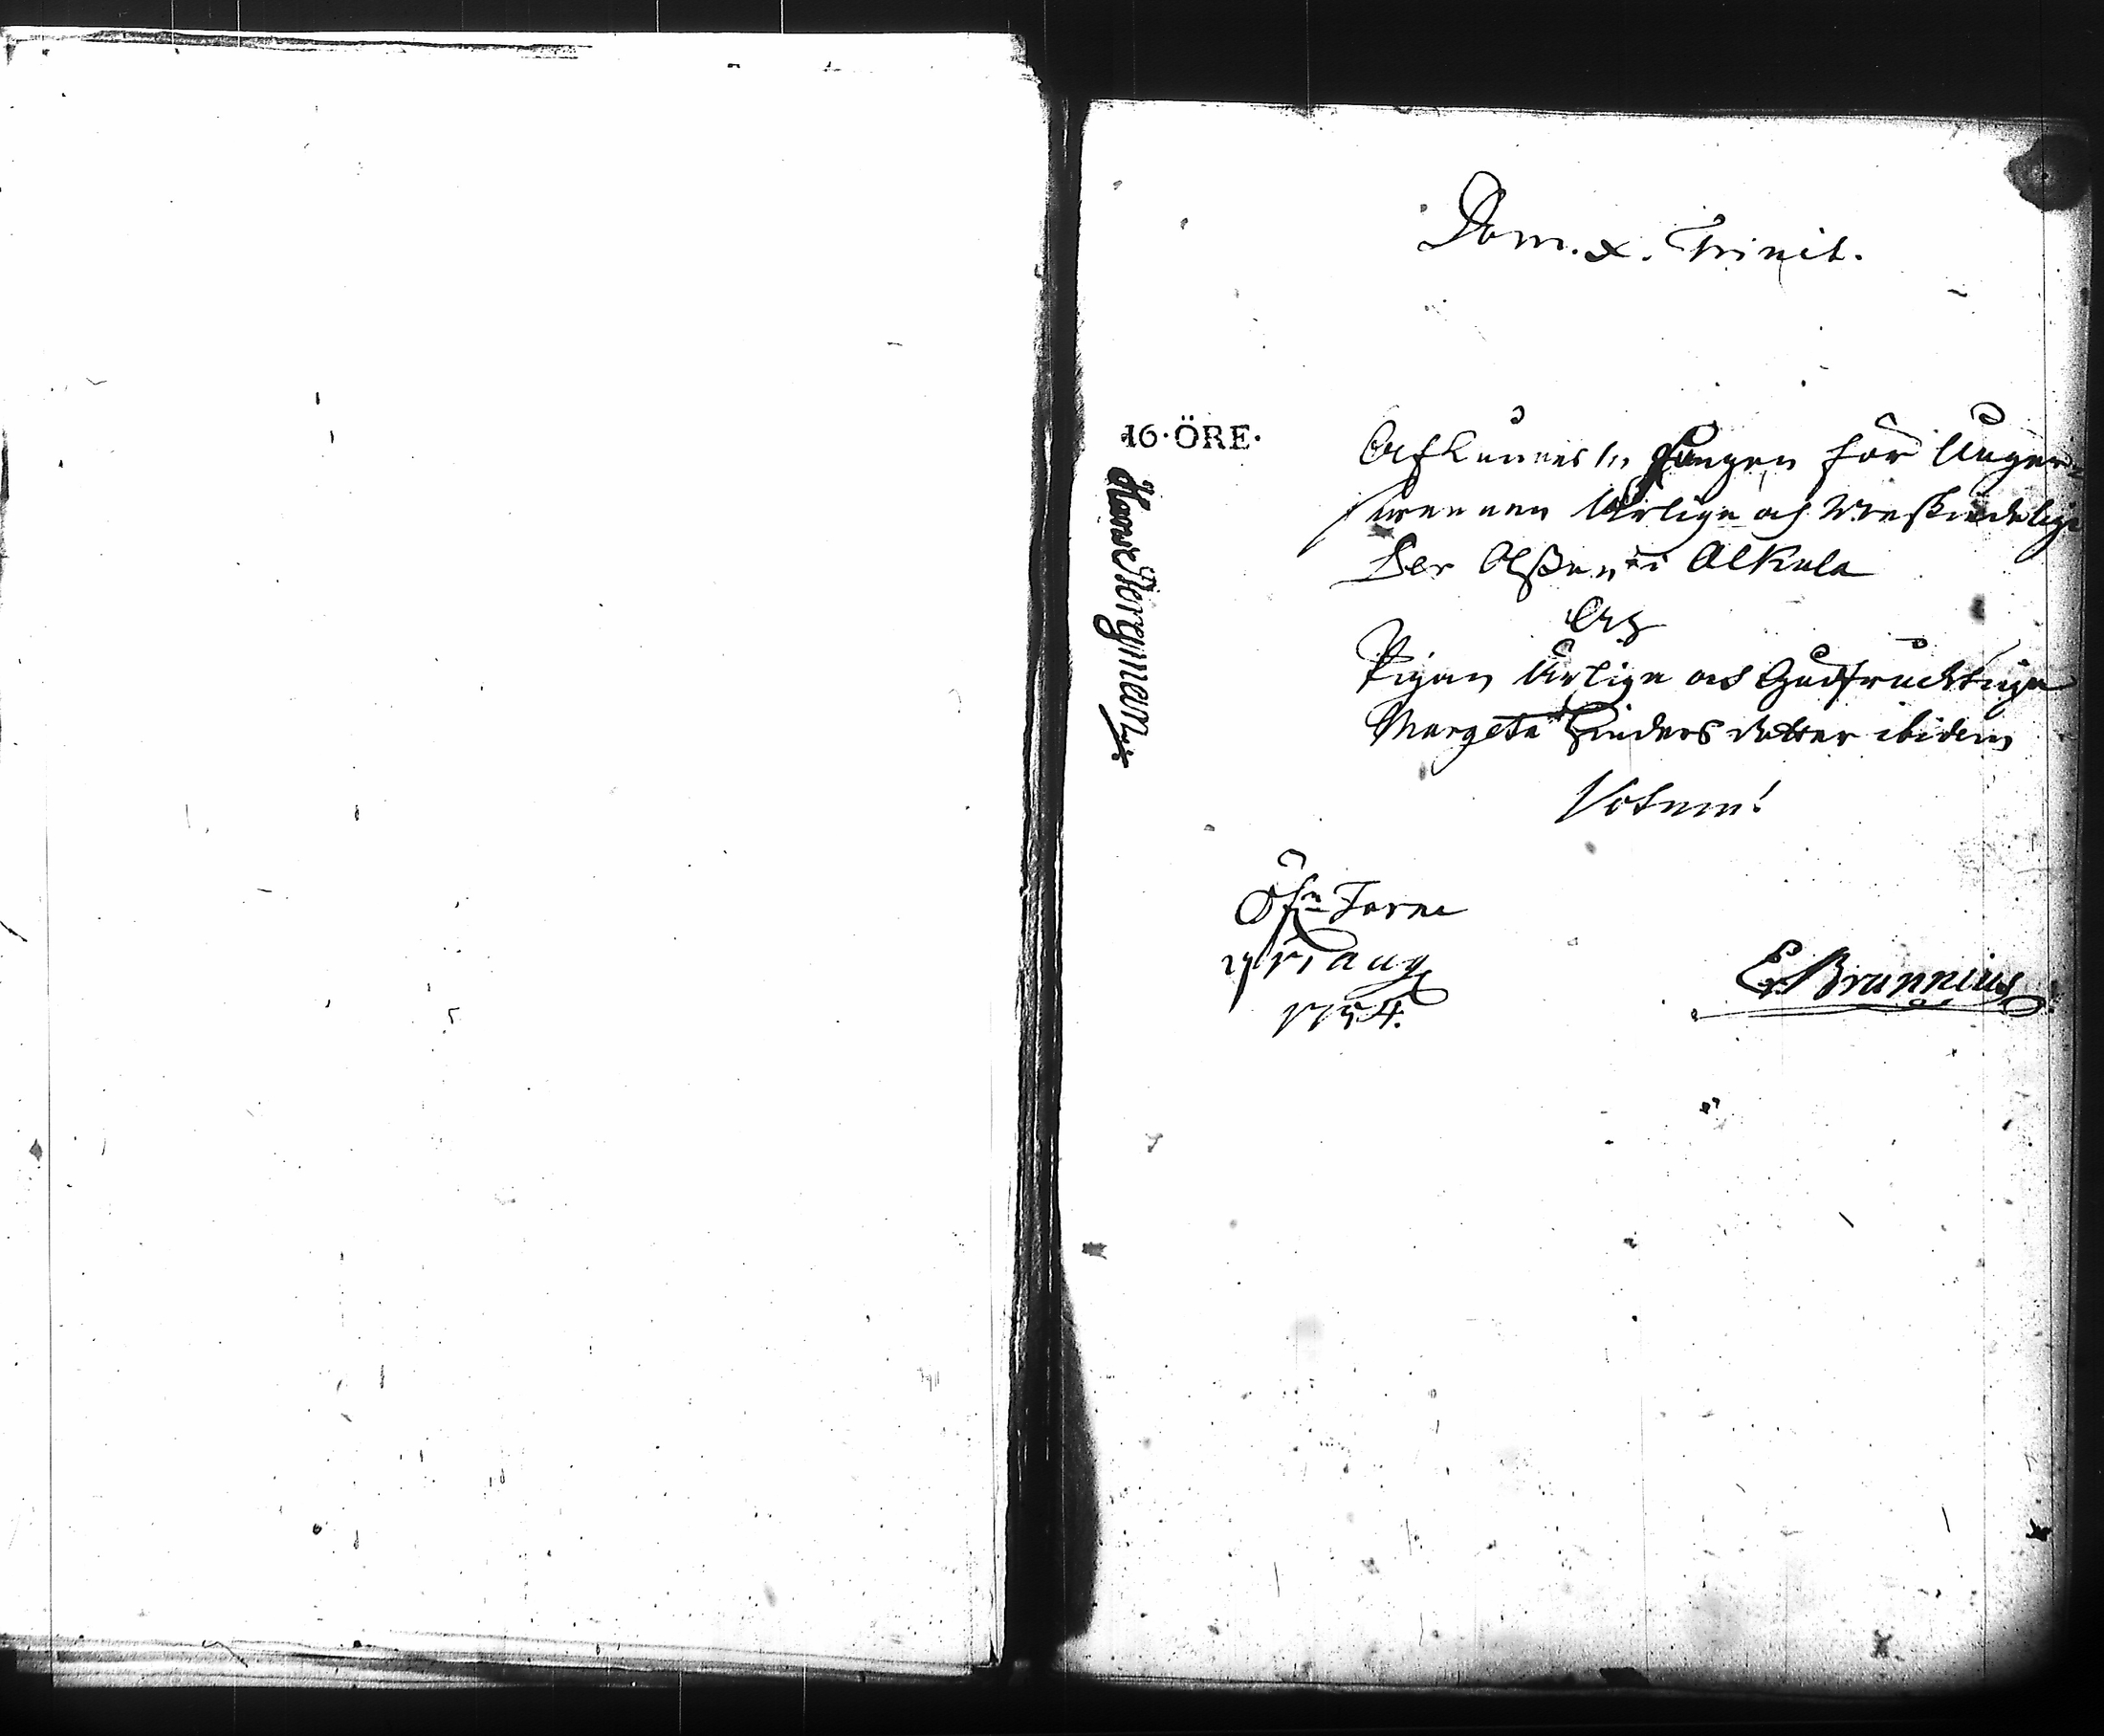 Dom. X. Trinit.
16·ÖRE·
Afkunnes 1:sta gången för Unger-
svennen Ärlige och Wälbeskedelige
Per Olßon i Alkula
Och
Pigan Ärliga och Gudfruchtiga
Margeta Hindersdotter ibidem
Votum!
Öf:r Torne
aug
1754.
E. Brunnius